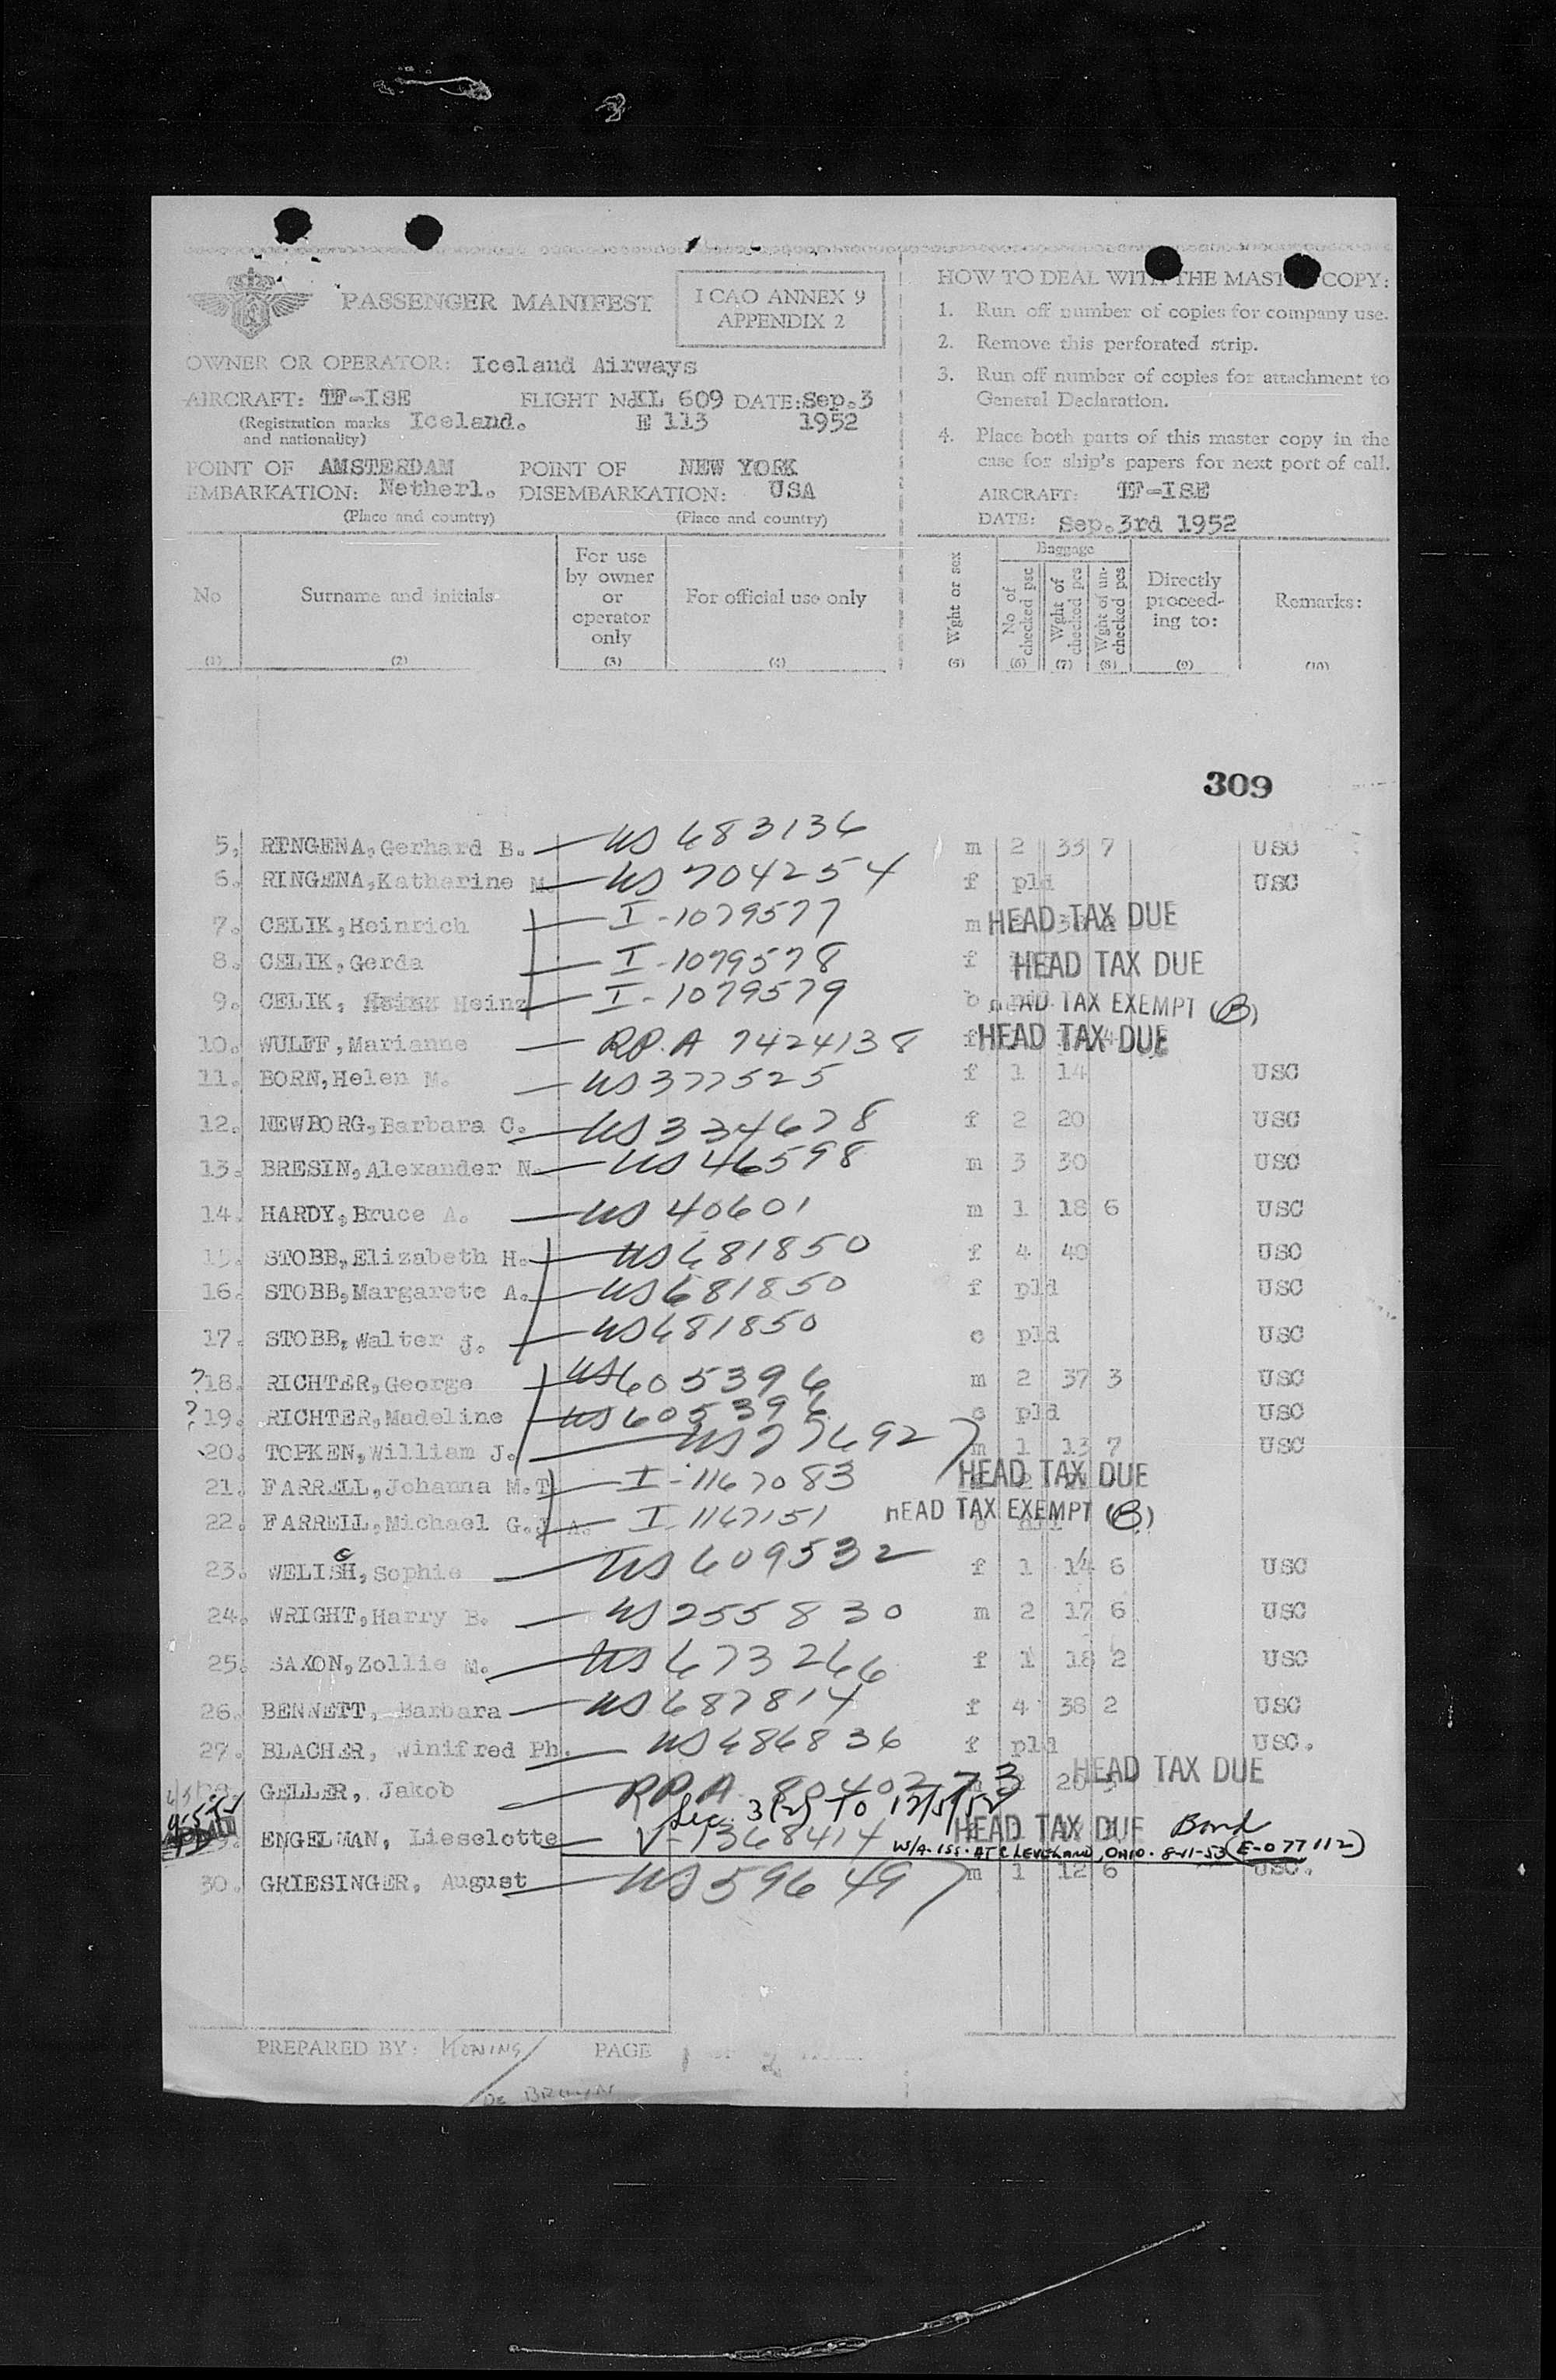 PASSENGER MANIFEST
I CAO ANNEX 9
APPENDIX 2
OWNER OR OPERATOR: Iceland Airways
AIRCRAFT: TF-ISE FLIGHT No KL 609 DATE: Sep.3
(Registration marks and nationality) Iceland. E 113 1952
POINT OF EMBARKATION: AMSTERDAM Netherl. POINT OF DISEMBARKATION: NEW YORK USA
(Place and country) (Place and country)
HOW TO DEAL WITH THE MASTER COPY:
1. Run off number of copies for company use.
2. Remove this perforated strip.
3. Run off number of copies for attachment to
General Declaration.
4. Place both parts of this master copy in the
case for ship's papers for next port of call.
AIRCRAFT: TF-ISE
DATE: Sep.3rd 1952
No Surname and initials For use by owner or operator only For official use only Wght or sex Baggage No of checked psc Wght of checked pcs Wght of un-checked pcs Directly proceed-ing to: Remarks:
(1) (2) (3) (4) (5) (6) (7) (8) (9) (10)
309
5. RINGENA, Gerhard B. US 683136 m 2 33 7 USC
6. RINGENA, Katharine M US 704254 f pld USC
7. CELIK, Heinrich I-1079577 m HEAD TAX DUE
8. CELIK, Gerda I-1079578 f HEAD TAX DUE
9. CELIK, Heinz I-1079579 b HEAD TAX EXEMPT (B)
10. WULFF, Marianne RP.A 7424138 f HEAD TAX DUE
11. BORN, Helen M. US 377525 f 1 14 USC
12. NEWBORG, Barbara C. US 334678 f 2 20 USC
13. BRESIN, Alexander N. US 46598 m 3 30 USC
14. HARDY, Bruce A. US 40601 m 1 18 6 USC
15. STOBB, Elizabeth H. US 681850 f 4 40 USC
16. STOBB, Margarete A. US 681850 f pld USC
17. STOBB, Walter J. US 681850 c pld USC
?18. RICHTER, George US 605396 m 2 37 3 USC
?19. RICHTER, Madeline US 605396 c pld USC
20. TOPKEN, William J. US 27692 m 1 13 7 USC
21. FARRELL, Johanna M.T. I-1167083 HEAD TAX DUE
22. FARRELL, Michael G.J.A. I-1167151 HEAD TAX EXEMPT (B)
23. WELISH, Sophie US 609532 f 1 14 6 USC
24. WRIGHT, Harry B. US 255830 m 2 17 6 USC
25. SAXON, Zollie M. US 673266 f 1 18 2 USC
26. BENNETT, Barbara US 687814 f 4 38 2 USC
27. BLACHER, Winifred Ph. US 686836 f pld USC.
28. GELLER, Jakob RP.A 8040273 20 HEAD TAX DUE
Sec. 3(2) TO 12/3/52
ENGELMAN, Lieselotte V-1368414 HEAD TAX DUE Bond
W/A-ISS. AT CLEVELAND, OHIO. 8-11-53 (E-077112)
30. GRIESINGER, August US 59649 m 1 12 6 USC.
PREPARED BY: KONING/ PAGE 2
DE BRUYN